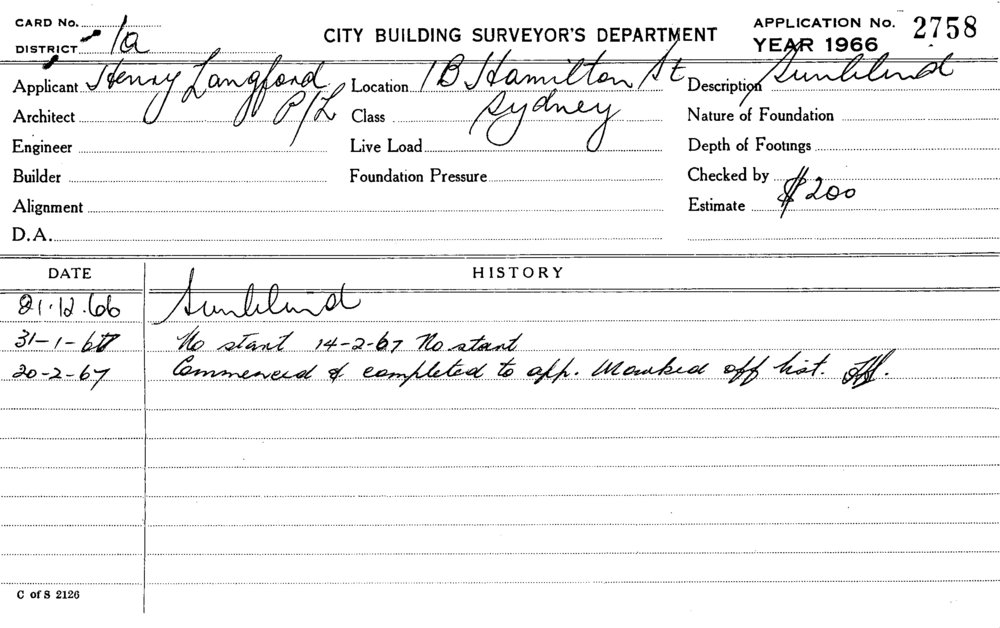 CARD No.
DISTRICT 1a
CITY BUILDING SURVEYOR'S DEPARTMENT
APPLICATION No. 2758
YEAR 1966
Applicant Henry Langford P/L Location 1B Hamilton St Description Sunblind
Architect Class Sydney Nature of Foundation
Engineer Live Load Depth of Footings
Builder Foundation Pressure Checked by
Alignment Estimate $200
D.A.
DATE HISTORY
21.12.66 Sunblind
31-1-67 No start 14-2-67 No start
20-2-67 Commenced & completed to app. Marked off list.
C of S 2126